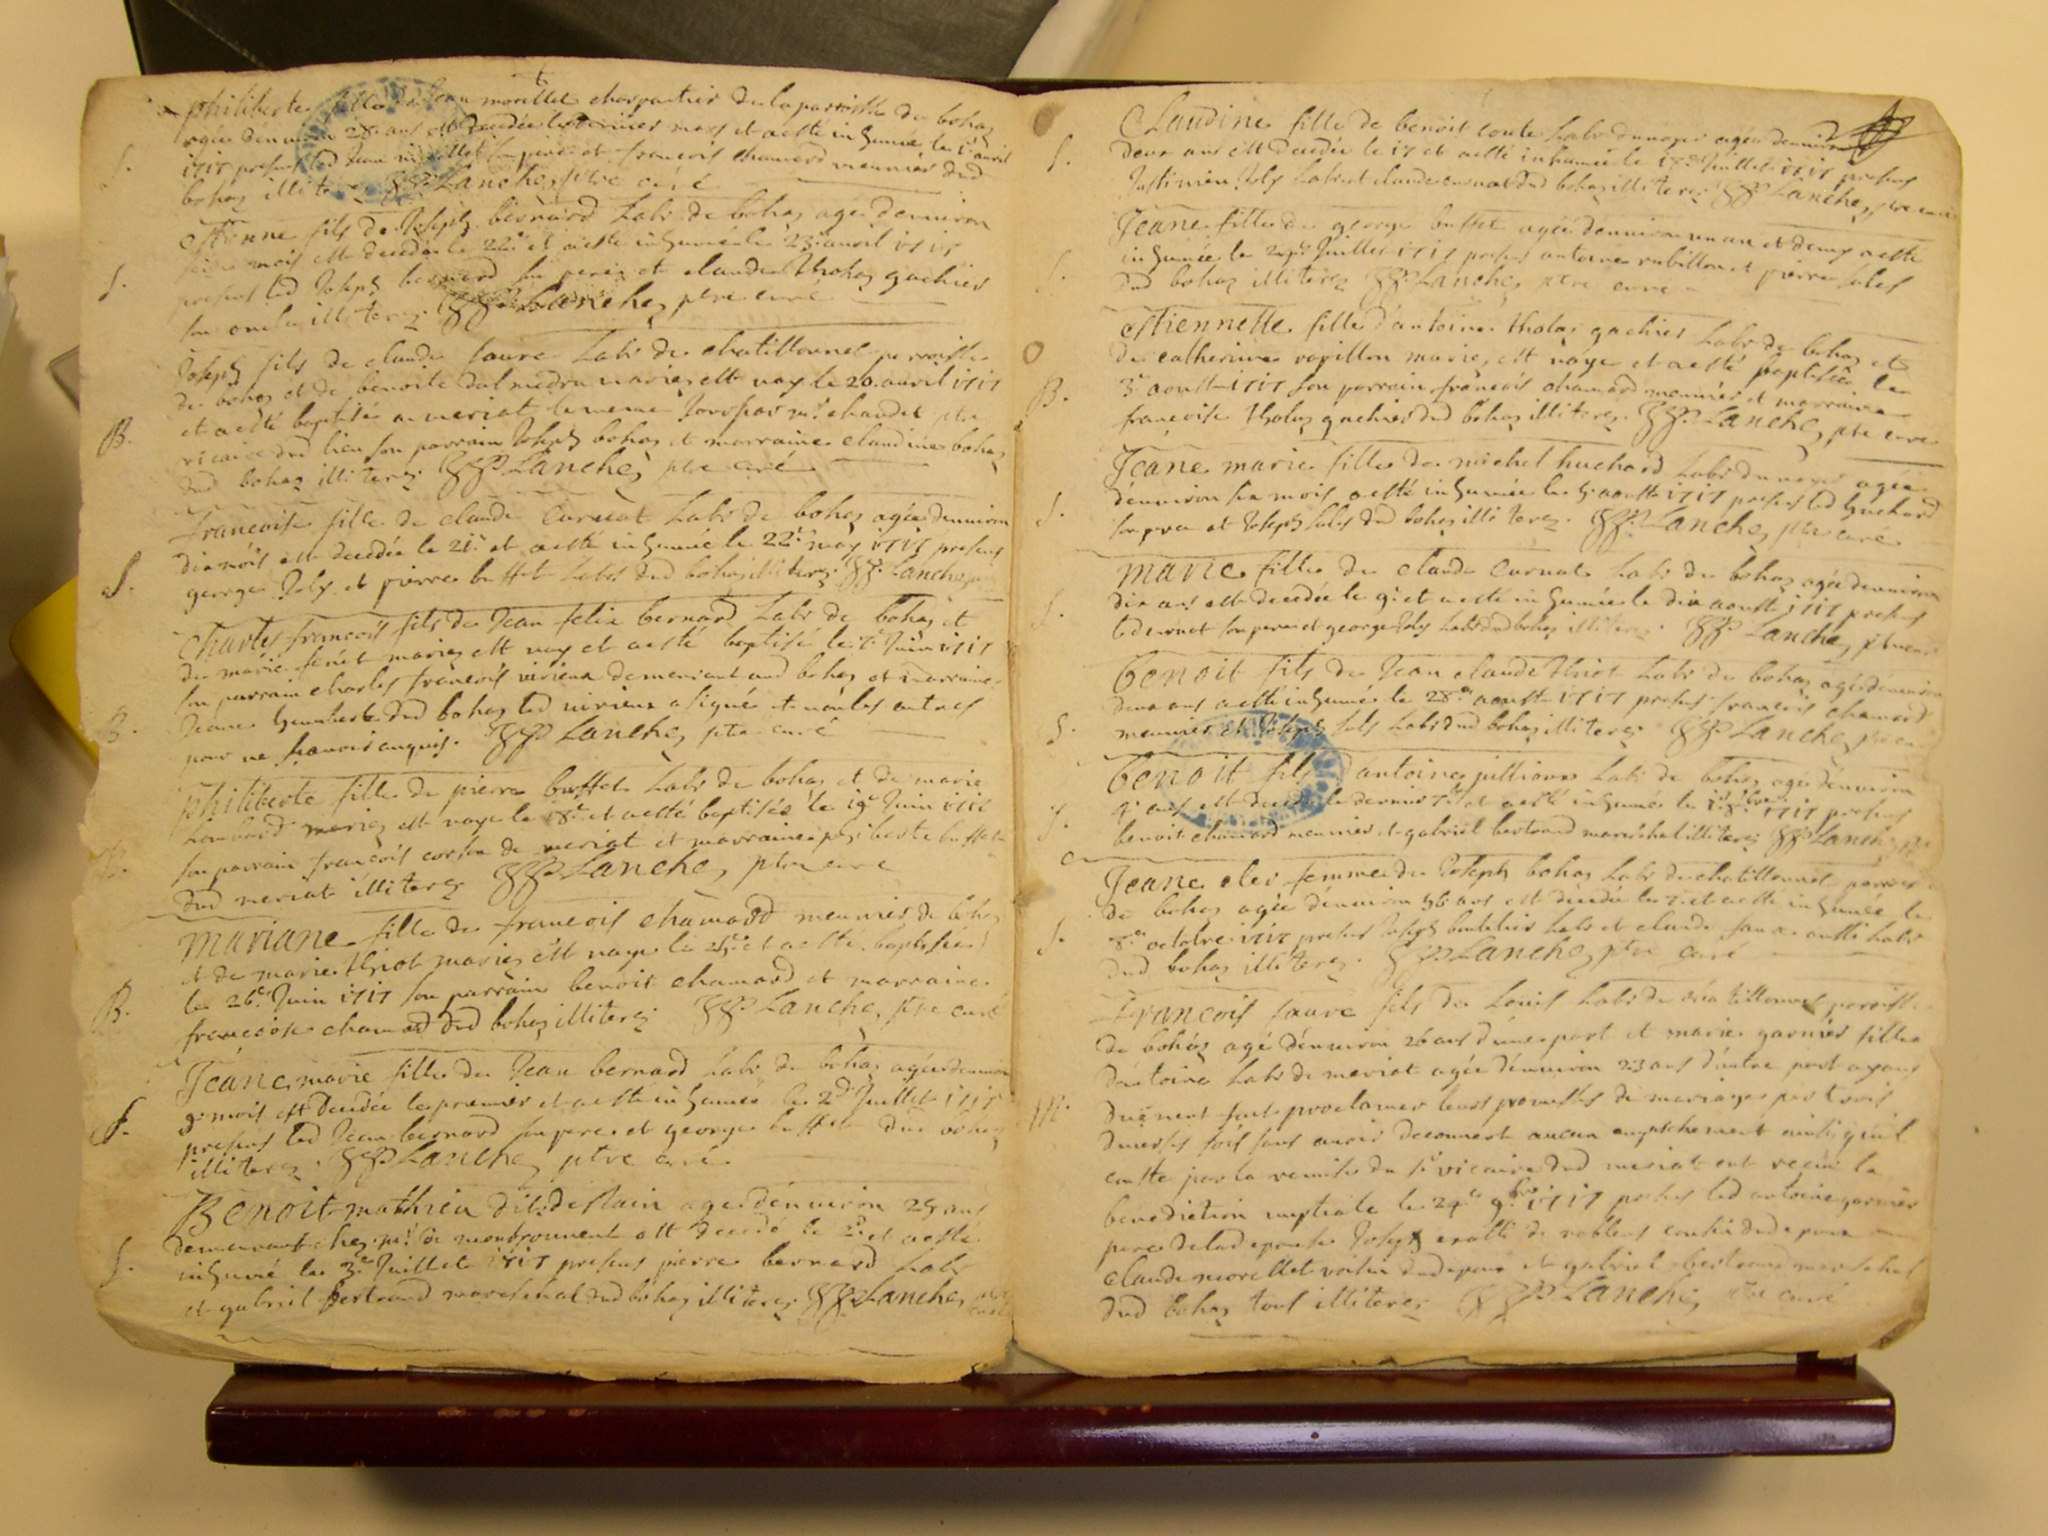 philiberte fille de Jean morellet charpantier de la parroisse de bohaz
agée denuiron 28 ans est decedée le dernier mars et a esté inhumée le 1r auril
1717 presens led Jean morellet son pere et francois chamard meunier dud
S.
bohaz illiterez Lanchez ptre curé
Estienne fils de Joseph bernard labr de bohaz agé denuiron
mois est decedé le 22e et a esté inhumé le 23e auril 1717
presens led Joseph bernard son pere et claude Tholaz gachier
S.
son oncle illiterez Lanchez ptre curé
Joseph fils de claude faure labr de chatillonnet parroisse
de bohaz et de benoite mariez est nay le 20 auril 1717
et a esté baptisé a meriat le meme Jour par mr chaudet ptre
B.
vicaire dud lieu son parrain Joseph bohaz et marraine claudine bohaz
dud bohaz illiterez Lanchez ptre curé
francoise fille de claude curuat labr de bohaz agée denuiron
dix mois est decedée le 21e et a esté inhumée le 22e may 1717 presens
S.
george Joly et pierre buffet labrs dud bohaz illiterez Lanchez
Charles francois fils de Jean felix bernard labr de bohaz et
de marie mariez est nay et a esté baptisé le Juin 1717
son parrain charles francois virieux demeurant aud bohaz et marraine
B.
Jeane humbert dud bohaz led virieux a signé et non les autres
pour ne scauoir enquis. Lanchez ptre curé
philiberte fille de pierre buffet labr de bohaz et de marie
mariez est naye le 18e et a esté baptisée le 19e Juin 1717
B.
son parrain francois de meriat et marraine philiberte buffet
dud meriat illiterez Lanchez ptre curé
Mariane fille de francois chamard meunier de bohaz
et de marie Thiot mariez est naye le 25e et a esté baptisée
B.
le 26e Juin 1717 son parrain benoit chamard et marraine
francoise chamard dud bohaz illiterez Lanchez ptre curé
Jeane marie fille de Jean bernard labr de bohaz agée denuiron
9 mois est decedée le premier et a esté inhumée le 2d Juillet 1717
S.
presens led Jean bernard son pere et george buffet dud bohaz
illiterez Lanchez ptre curé
Benoit mathieu dit destain agé denuiron 25 ans
demeurant chez mr de montronnent est decedé le 2d et a esté
S.
inhumé le 3e Juillet 1717 presens pierre bernard labr
et gabriel bertrand mareschal dud bohaz illiterez Lanchez ptre curé
Claudine fille de benoit conte labr agée denuiron
S.
deux ans est decedée le 17 et a esté inhumée le 18e Juillet 1717 presens
Justinien Joly labr et claude curuat dud bohaz illiterez Lanchez ptre curé
Jeane fille de george buffet agée denuiron un an et demy a esté
S.
inhumée le Juillet 1717 presens antoine rubillon et pierre labrs
dud bohaz illiterez Lanchez ptre curé
Estiennette fille d'antoine Tholaz gachier labr de bohaz et
de catherine vopillon mariez est naye et a esté baptisée le
B.
3e aoust 1717 son parrain francois chamard meunier et marraine
francoise Tholaz gachier dud bohaz illiterez Lanchez ptre curé
Jeane marie fille de michel huchard labr agée
S.
denuiron six mois a esté inhumée le aoust 1717 presens led huchard
son pere et Joseph dud bohaz illiterez. Lanchez ptre curé
Marie fille de claude curuat labr de bohaz agée denuiron
S.
dix ans est decedée le 9e et a esté inhumée le dix aoust 1717 presens
led curuat son pere et george Joly labr dud bohaz illiterez. Lanchez ptre curé
Benoit fils de Jean claude Thiot labr de bohaz agé denuiron
deux ans a esté inhumé le 28e aoust 1717 presens francois chamard
S.
meunier et Joseph labr dud bohaz illiterez Lanchez ptre curé
Benoit fils d'antoine jullion labr de bohaz agé denuiron
S.
4 ans est decedé le dernier 7bre et a esté inhumé le 1r 8bre 1717 presens
benoit chamard meunier et gabriel bertrand mareschal illiterez Lanchez
Jeane femme de Joseph bohaz labr de chatillonnet parroisse
de bohaz agée denuiron 56 ans est decedée le 7 et a esté inhumée le
S.
8e octobre 1717 presens Joseph labr et claude faure aussi labr
dud bohaz illiterez. Lanchez ptre curé
Francois faure fils de Louis labr de chatillonnet parroisse
de bohaz agé denuiron 26 ans d'une part et marie garnier fille
d'antoine labr de meriat agée denuiron 23 ans d'autre part ayans
M.
duement fait proclamer leurs promesses de mariage par trois
diuerses fois sans auoir decouuert aucun empechement ainsi quil
conste par la remise du sr vicaire dud meriat ont receu la
benediction nuptiale le 24e 9bre 1717 presens led antoine garnier
pere de lad epouse Joseph de nobles cousin dud epoux
claude morellet voisin dud epoux et gabriel bertrand mareschal
dud bohaz tous illiterez Lanchez ptre curé